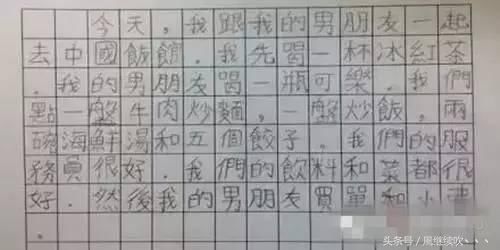 今天,我跟我的男朋友一起
去中國飯館.我先喝一杯冰紅茶
.我的男朋友喝一瓶可樂.我們
點一盤牛肉炒麵,一盤炒飯,兩
碗海鮮湯和五個餃子.我們的服
務員很好.我們的飲料和菜都很
好.然後我的男朋友買單和小費
.
头条号/周继续吹、